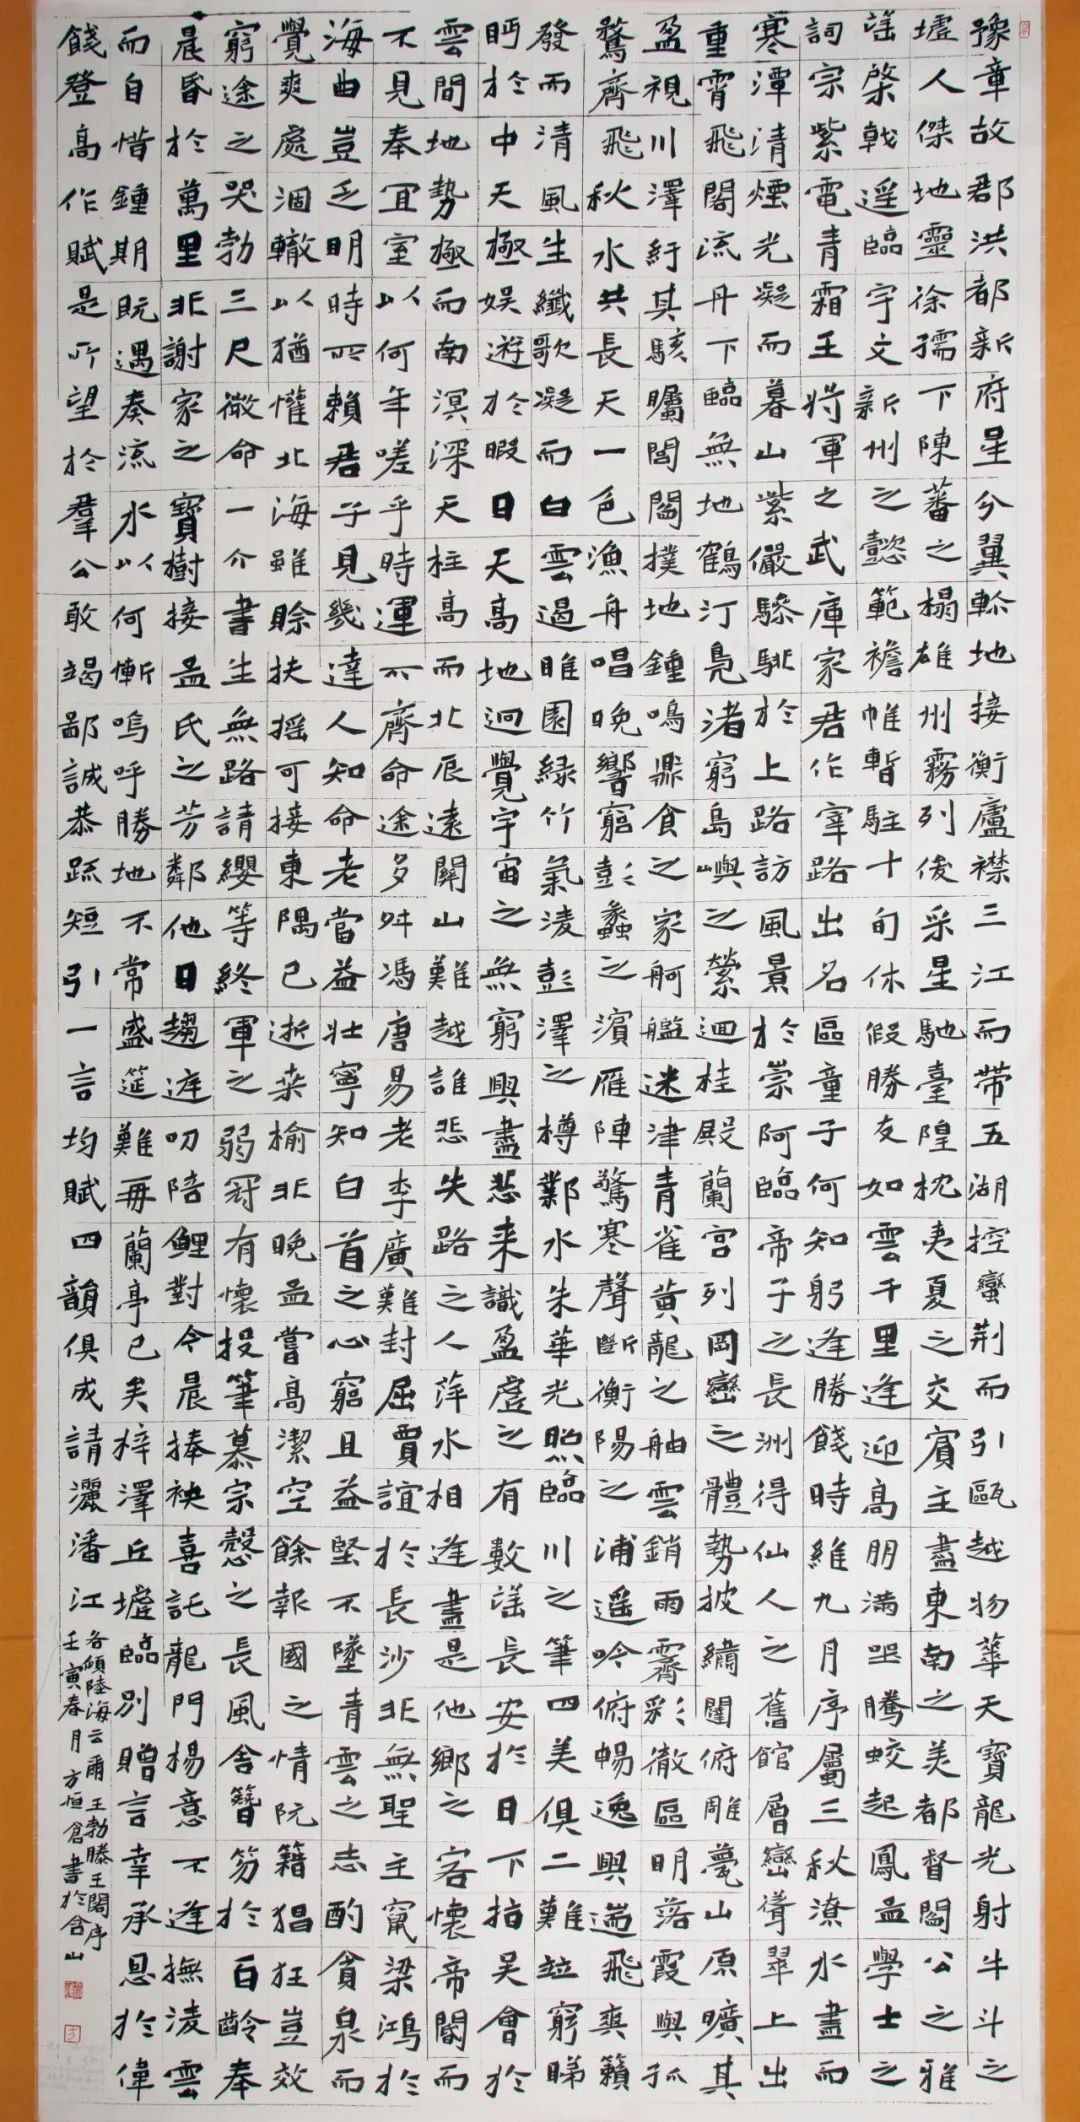 豫章故郡洪都新府星分翼軫地接衡廬襟三江而帶五湖控蠻荊而引甌越物華天寶龍光射牛斗之
墟人傑地靈徐孺下陳蕃之榻雄州霧列俊采星馳臺隍枕夷夏之交賓主盡東南之美都督閻公之雅
謡棨戟遥臨宇文新州之懿範襜帷暫駐十旬休假勝友如雲千里逢迎高朋滿坐騰蛟起鳳孟學士之
詞宗紫電青霜王將軍之武庫家君作宰路出名區童子何知躬逢勝餞時維九月序屬三秋潦水盡而
寒潭清煙光凝而暮山紫儼驂騑於上路訪風景於崇阿臨帝子之長洲得仙人之舊館層巒聳翠上出
重霄飛閣流丹下臨無地鶴汀鳧渚窮島嶼之縈迴桂殿蘭宮列岡巒之體勢披繡闥俯雕甍山原曠其
盈視川澤紆其駭矚閭閻撲地鍾鳴鼎食之家舸艦迷津青雀黃龍之舳雲銷雨霽彩徹區明落霞與孤
鶩齊飛秋水共長天一色漁舟唱晚響窮彭蠡之濱雁陣驚寒聲斷衡陽之浦遥吟俯暢逸興遄飛爽籟
發而清風生纖歌凝而白雲遏睢園緑竹氣凌彭澤之樽鄴水朱華光照臨川之筆四美俱二難並窮睇
眄於中天極娛遊於暇日天高地迥覺宇宙之無窮興盡悲来識盈虛之有數謡長安於日下指吳會於
雲間地勢極而南溟深天柱高而北辰遠關山難越誰悲失路之人萍水相逢盡是他鄉之客懷帝閽而
不見奉宣室以何年嗟乎時運不齊命途多舛馮唐易老李廣難封屈賈誼於長沙非無聖主竄梁鴻於
海曲豈乏明時所賴君子見幾達人知命老當益壯寧知白首之心窮且益堅不墜青雲之志酌貪泉而
覺爽處涸轍以猶懽北海雖賒扶摇可接東隅已逝桑榆非晚孟嘗高潔空餘報國之情阮籍猖狂豈效
窮途之哭勃三尺微命一介書生無路請纓等終軍之弱冠有懷投筆慕宗慤之長風舍簪笏於百齡奉
晨昏於萬里非謝家之寶樹接孟氏之芳鄰他日趨庭叨陪鯉對今晨捧袂喜託龍門楊意不逢撫凌雲
而自惜鍾期既遇奏流水以何慚嗚呼勝地不常盛筵難再蘭亭已矣梓澤丘墟臨別贈言幸承恩於偉
餞登高作賦是所望於羣公敢竭鄙誠恭疏短引一言均賦四韻俱成請灑潘江
各傾陸海云爾 王勃滕王閣序
壬寅春月方恒倉書於含山